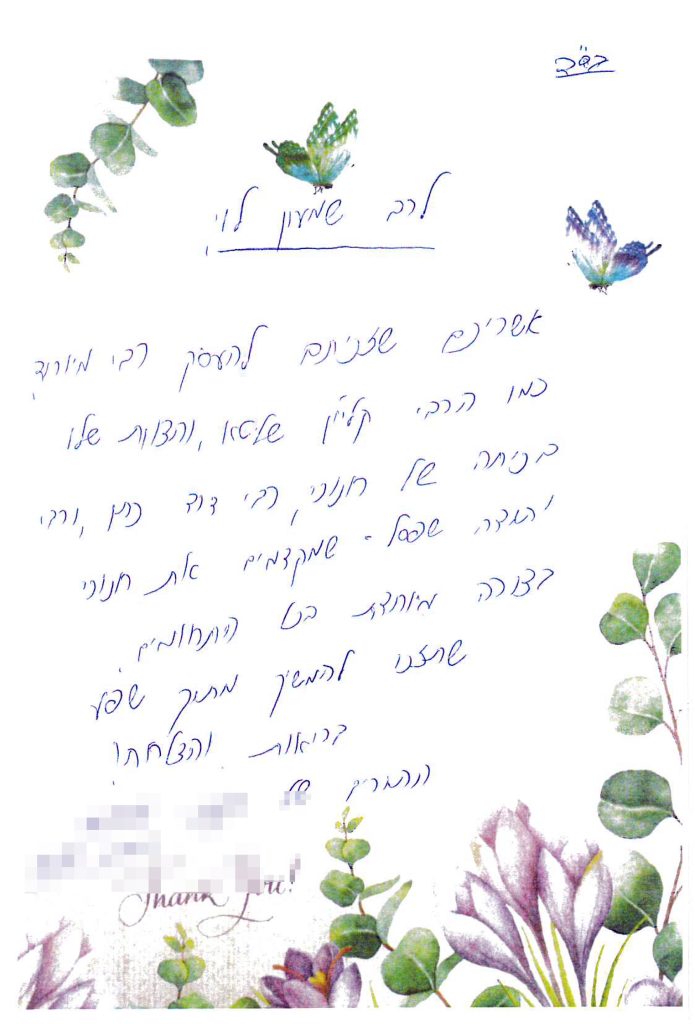 בס"ד
לרב שמעון לוי,
אשריכם שזכיתם להעסיק רבי מיוחד,
כמו הרבי קליין שליטא, והצוות שלו
בכיתה של חנוני, רבי דוד כהן, ורבי
יהודה שפסל - שמקדמים את חנוני
בצורה מיוחדת בכל התחומים.
שתזכו להמשיך מתוך שפע
בריאות והצלחה!
ההורים של
Thank you!